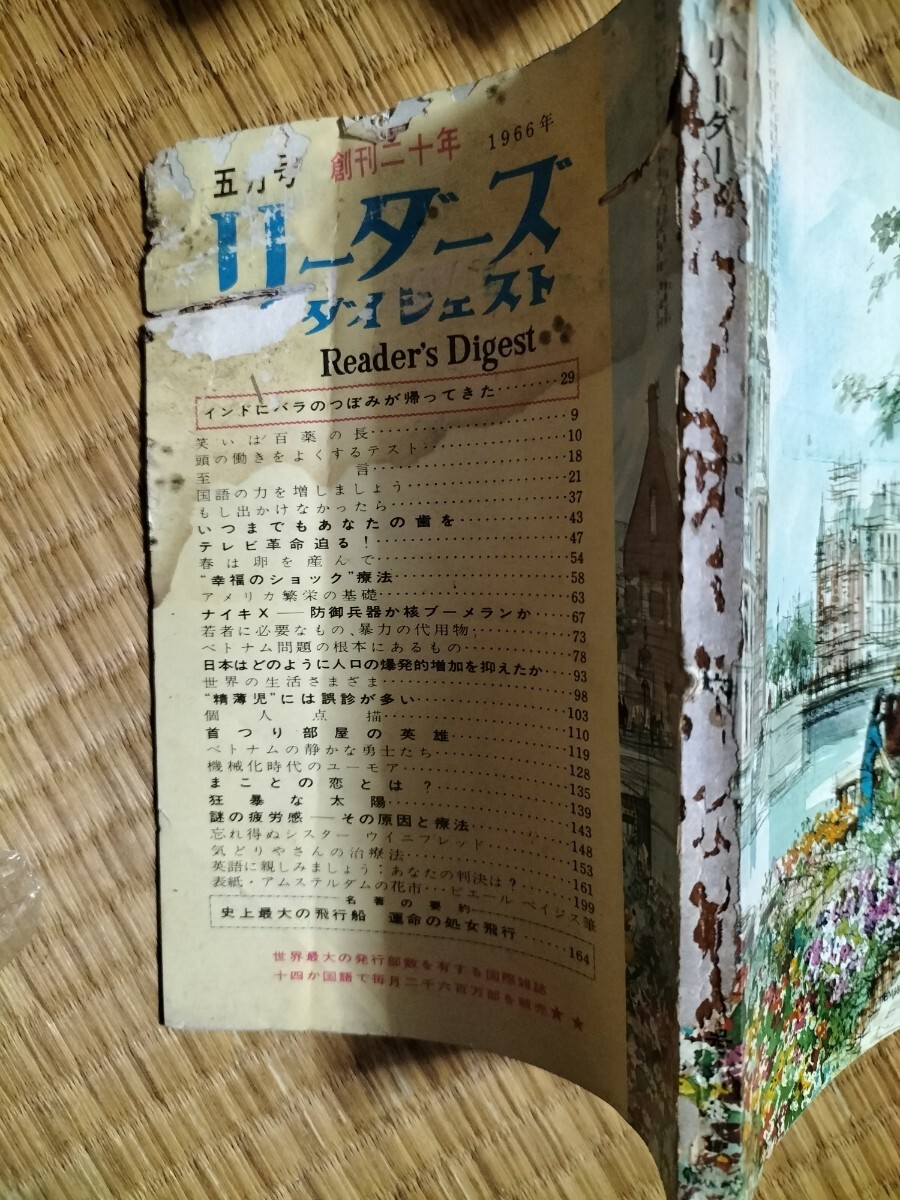 五月号 創刊二十年 1966年
リーダーズ
ダイジェスト
Reader's Digest
インドにバラのつぼみが帰ってきた………29
笑いは百薬の長………9
頭の働きをよくするテスト………10
至言………18
国語の力を増しましょう………21
もし出かけなかったら………37
いつまでもあなたの歯を………43
テレビ革命迫る！………47
春は卵を産んで………54
“幸福のショック”療法………58
アメリカ繁栄の基礎………63
ナイキX──防御兵器か核ブーメランか……67
若者に必要なもの、暴力の代用物………73
ベトナム問題の根本にあるもの………78
日本はどのように人口の爆発的増加を抑えたか……93
世界の生活さまざま………98
“精薄児”には誤診が多い………103
個人点描………110
首つり部屋の英雄………119
ベトナムの静かな勇士たち………128
機械化時代のユーモア………135
まことの恋とは？………139
狂暴な太陽………143
謎の疲労感──その原因と療法………148
忘れ得ぬシスター ウイニフレッド………153
気どりやさんの治療法………161
英語に親しみましょう：あなたの判決は？………199
表紙・アムステルダムの花市…ピエール ペイジス筆
名著の要約
史上最大の飛行船 運命の処女飛行……164
世界最大の発行部数を有する国際雑誌
十四か国語で毎月二千六百万部を販売★★
リーダー